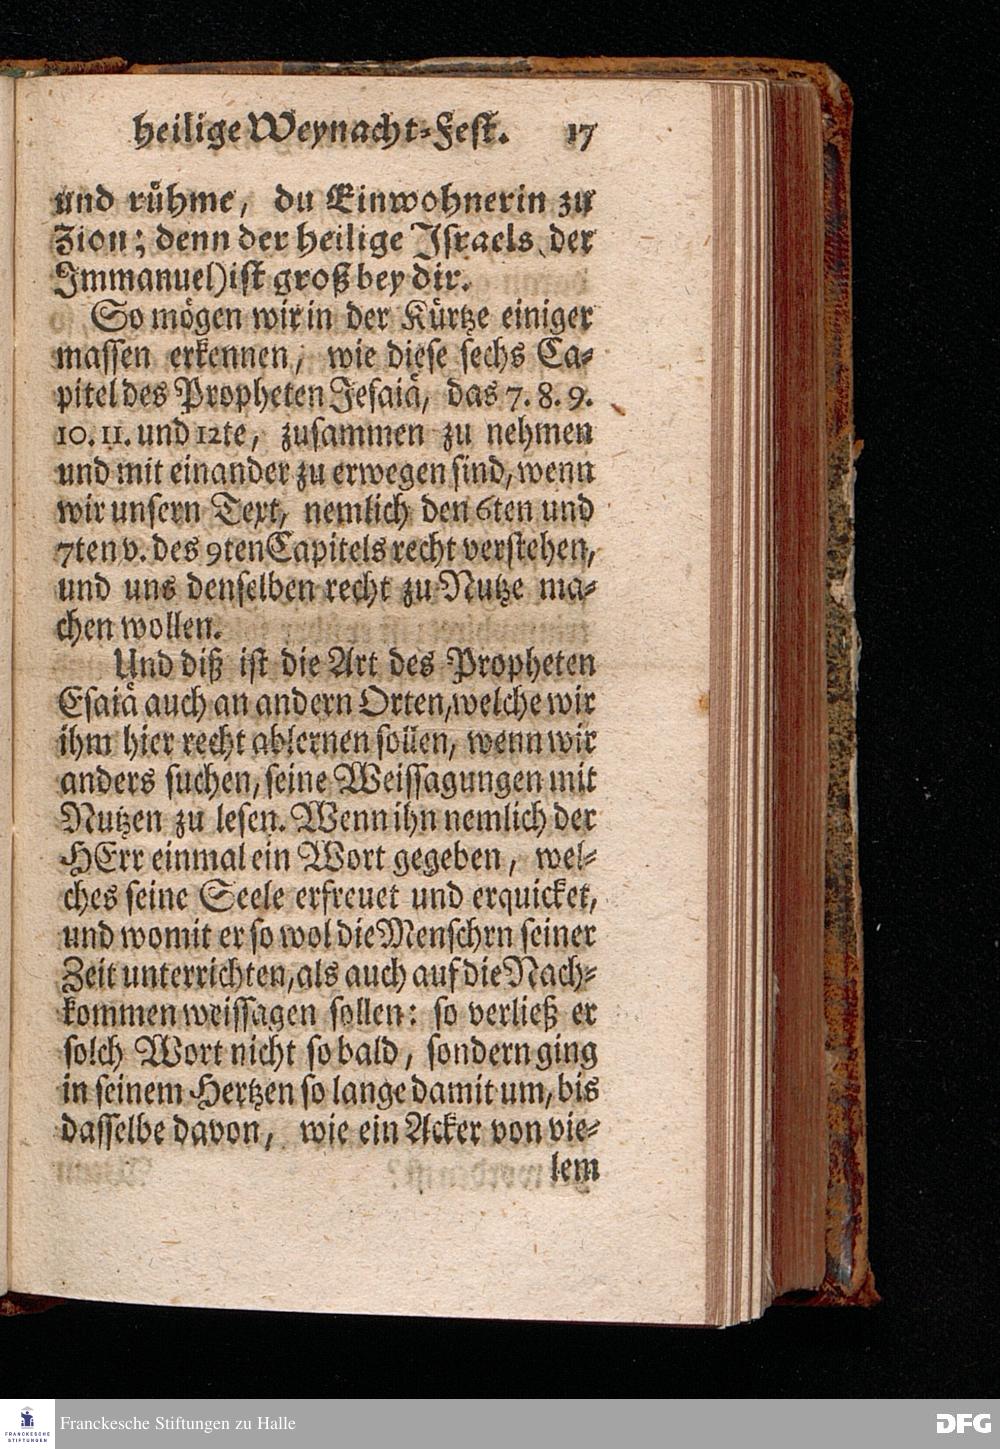 heilige Weynacht-Fest. 17
und rühme, du Einwohnerin zu
Zion; denn der heilige Israels (der
Immanuel) ist groß bey dir.
So mögen wir in der Kürtze einiger
massen erkennen, wie diese sechs Ca-
pitel des Propheten Jesaiä, das 7. 8. 9.
10. 11. und 12te, zusammen zu nehmen
und mit einander zu erwegen sind, wenn
wir unsern Text, nemlich den 6ten und
7ten v. des 9ten Capitels recht verstehen,
und uns denselben recht zu Nutze ma-
chen wollen.
Und diß ist die Art des Propheten
Esaiä auch an andern Orten, welche wir
ihm hier recht ablernen sollen, wenn wir
anders suchen, seine Weissagungen mit
Nutzen zu lesen. Wenn ihn nemlich der
HErr einmal ein Wort gegeben, wel-
ches seine Seele erfreuet und erquicket,
und womit er so wol die Menschrn seiner
Zeit unterrichten, als auch auf die Nach-
kommen weissagen sollen: so verließ er
solch Wort nicht so bald, sondern ging
in seinem Hertzen so lange damit um, bis
dasselbe davon, wie ein Acker von vie-
lem
FRANCKESCHE
STIFTUNGEN
Franckesche Stiftungen zu Halle
DFG